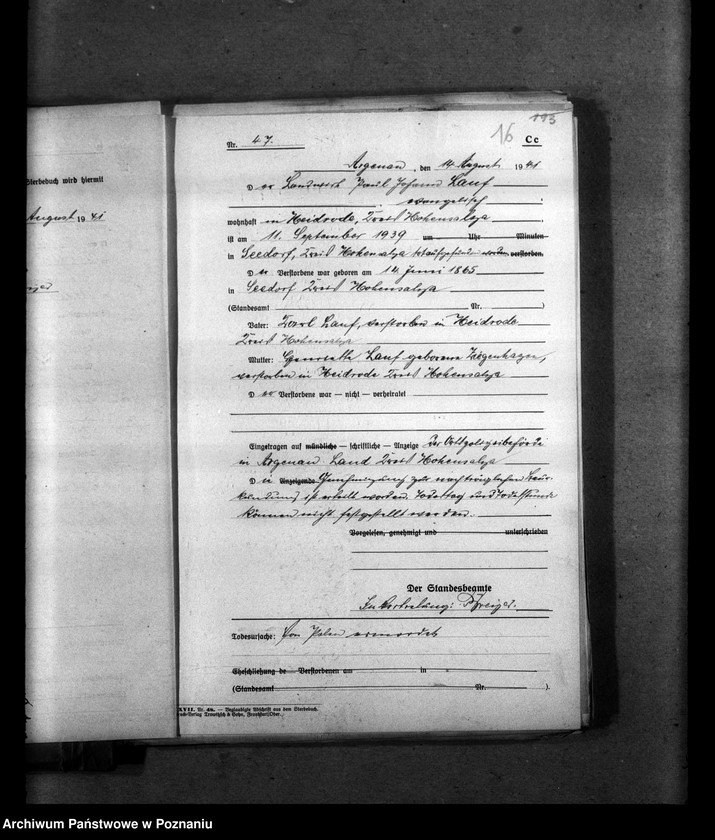 Sterbebuch wird hiermit
August 1941
16
193
Nr. 47.
Cc
Argenau, den 14. August 1941
Der Landwirt Paul Johann Lauf
, evangelisch,
wohnhaft in Heidrode, Kreis Hohensalza
ist am 11. September 1939 um Uhr Minuten
in Seedorf, Kreis Hohensalza tot aufgefunden worden verstorben.
Der Verstorbene war geboren am 14. Juni 1865
in Seedorf Kreis Hohensalza
(Standesamt Nr. )
Vater: Karl Lauf, verstorben in Heidrode
Kreis Hohensalza
Mutter: Lauf geborene
verstorben in Heidrode Kreis Hohensalza
Der Verstorbene war — nicht — verheiratet
Eingetragen auf mündliche — schriftliche — Anzeige der Ortspolizeibehörde
in Argenau Land Kreis Hohensalza
Die Anzeigende Genehmigung zur nachträglichen Beur-
kundung ist erteilt worden. Todestag und Todesstunde
können nicht festgestellt werden.
Vorgelesen, genehmigt und unterschrieben
Der Standesbeamte
In Vertretung:
Todesursache: Von Polen ermordet
Eheschließung de Verstorbenen am in
(Standesamt Nr. ).
XVII. Nr. 48. — Beglaubigte Abschrift aus dem Sterbebuch.
Verlag Trowitzsch & Sohn, Frankfurt/Oder.
Archiwum Państwowe w Poznaniu